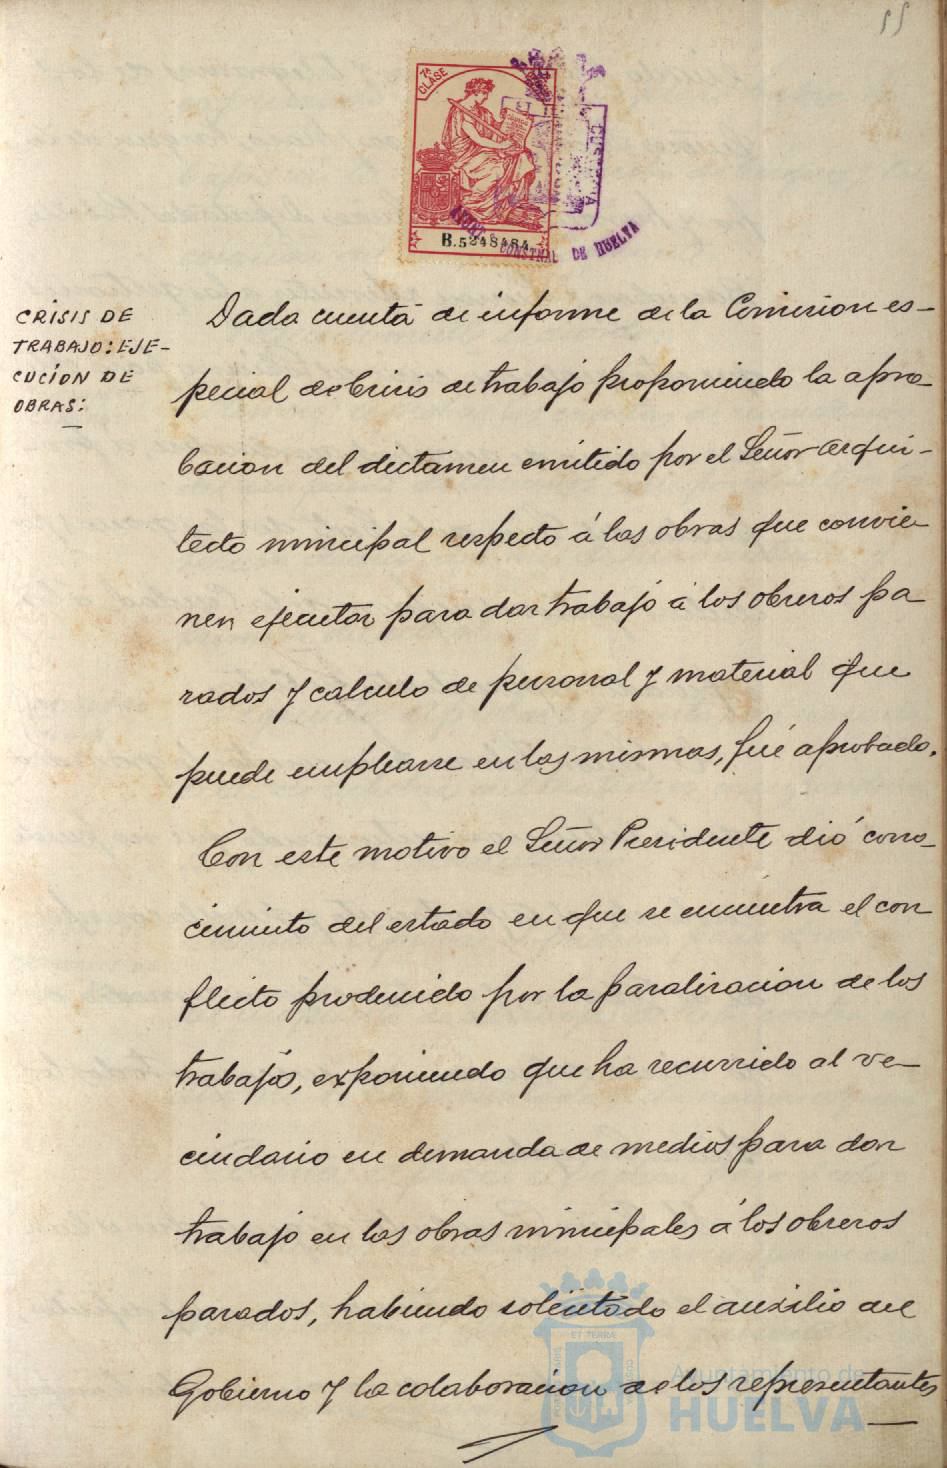 55
7ª
CLASE
B.5248484
AYUNTº CONSTNAL DE HUELVA
CRISIS DE
TRABAJO: EJE-
CUCION DE
OBRAS:
Dada cuenta de informe de la Comision es-
pecial de Crisis de trabajo proponiendo la apro
bacion del dictamen emitido por el Señor Arqui-
tecto municipal respecto á las obras que convie
nen ejecutar para dar trabajo á los obreros pa
rados y calculo de personal y material que
puede emplearse en las mismas, fué aprobado.
Con este motivo el Señor Presidente dió cono-
cimiento del estado en que se encuentra el con
flicto producido por la paralizacion de los
trabajos, exponiendo que ha recurrido al ve-
cindario en demanda de medios para dar
trabajo en las obras municipales á los obreros
parados, habiendo solicitado el auxilio del
Gobierno y la colaboracion de los representantes
ET TERRAE
Ayuntamiento de
HUELVA